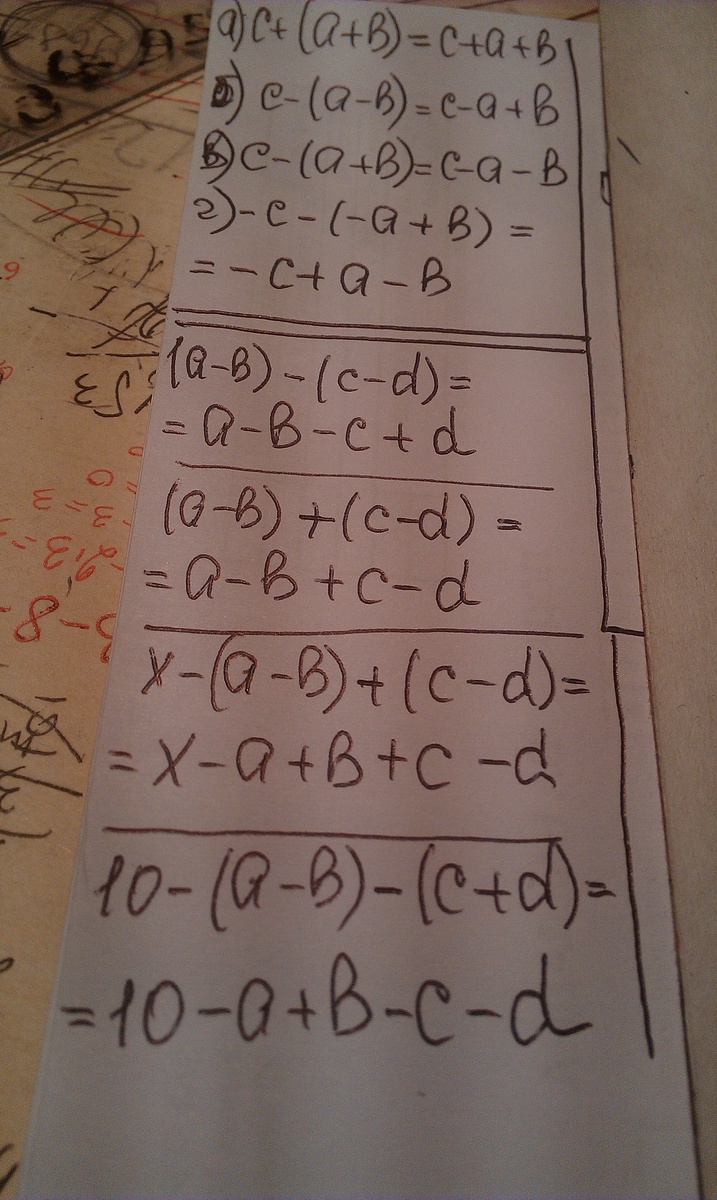 а) c+(a+b)=c+a+b
б) c-(a-b)=c-a+b
в) c-(a+b)=c-a-b
г) -c-(-a+b)=
=-c+a-b
(a-b)-(c-d)=
=a-b-c+d
(a-b)+(c-d)=
=a-b+c-d
x-(a-b)+(c-d)=
=x-a+b+c-d
10-(a-b)-(c+d)=
=10-a+b-c-d